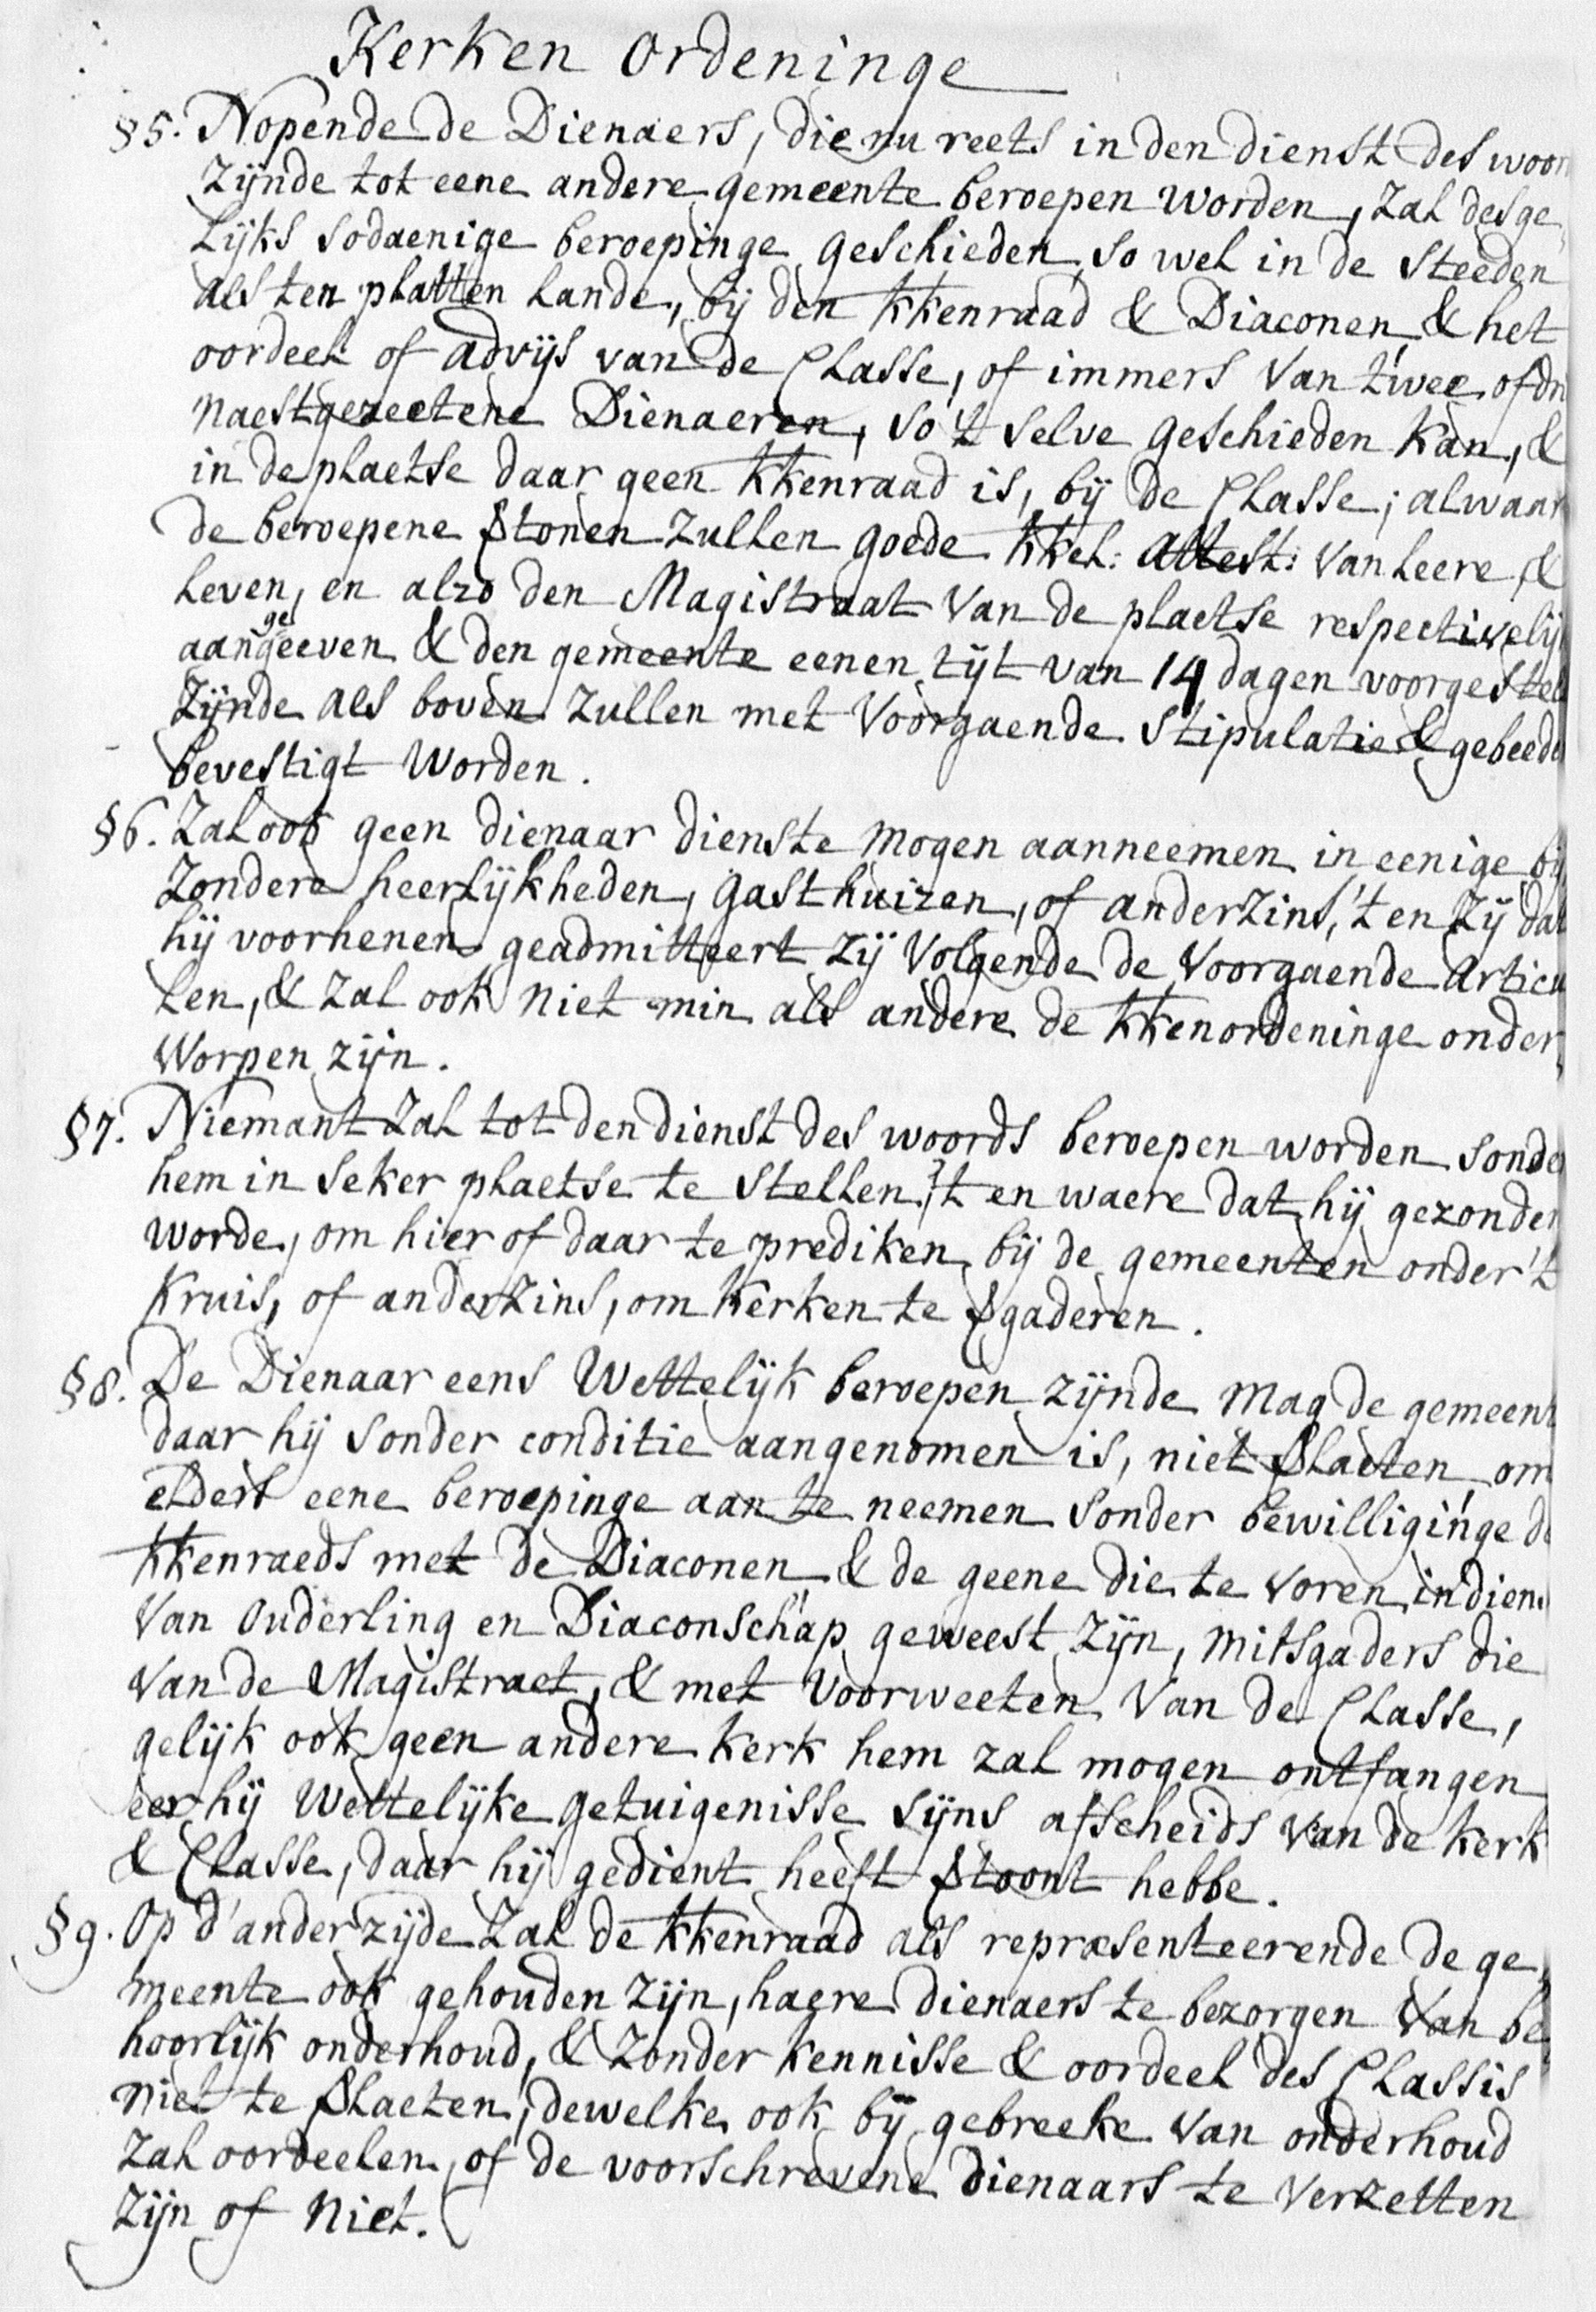 Kerken ordeninge
§5. Nopende de Dienaers, die nu reets in den dienst des woor
zijnde tot eene andere gemeente beroepen worden, zal desge
lijks sodaenige beroepinge geschieden, so wel in de steeden
als ten platten lande, bij den kkenraad & Diaconen, & het
oordeel of advijs van de Classe, of immers van twee of dri
naestgezeetene Dienaeren, so 't selve geschieden kan, &
in de plaetse daar geen kkenraad is, bij de Classe; alwaar
de beroepene vtonen zullen goede kkel: attest: van leere, &
leven, en alzo den Magistraat van de plaetse respectivelij
aangegeeven & den gemeente eenen tijt van 14 dagen voorgestel
zijnde als boven zullen met voorgaende stipulatie & gebeede
bevestigt worden.
§6. Zal ook geen dienaar dienste mogen aanneemen in eenige bij
zondere heerlijkheden, gasthuizen, of anderzins, 't en zij dat
hij voorhenen geadmitteert zij volgende de voorgaende articu
len, & zal ook niet min als andere de kkenordeninge onder
worpen zijn.
§7. Niemant zal tot den dienst des woords beroepen worden sonder
hem in seker plaetse te stellen, 't en waere dat hij gezonden
worde, om hier of daar te prediken, bij de gemeenten onder 't
kruis, of anderzins, om kerken te vgaderen.
§8. De Dienaar eens wettelijk beroepen zijnde mag de gemeent
daar hij sonder conditie aangenomen is, niet vlaeten, om
elders eene beroepinge aan te neemen sonder bewilliginge de
kkenraeds met de Diaconen & de geene die te voren in dien
van ouderling en Diaconschap geweest zijn, mitsgaders die
van de Magistraet, & met voorweeten van de Classe,
gelijk ook geen andere kerk hem zal mogen ontfangen
eer hij wettelijke getuigenisse sijns afscheids van de kerk
& Classe, daar hij gedient heeft vtoont hebbe.
§9. Op d'ander zijde zal de kkenraad als repræsenteerende de ge
meente ook gehouden zijn, haere dienaers te bezorgen van be
hoorlijk onderhoud, & zonder kennisse & oordeel des Classis
niet te vlaeten, dewelke ook bij gebreeke van onderhoud
zal oordeelen, of de voorschrevene dienaars te verzetten
zijn of niet.